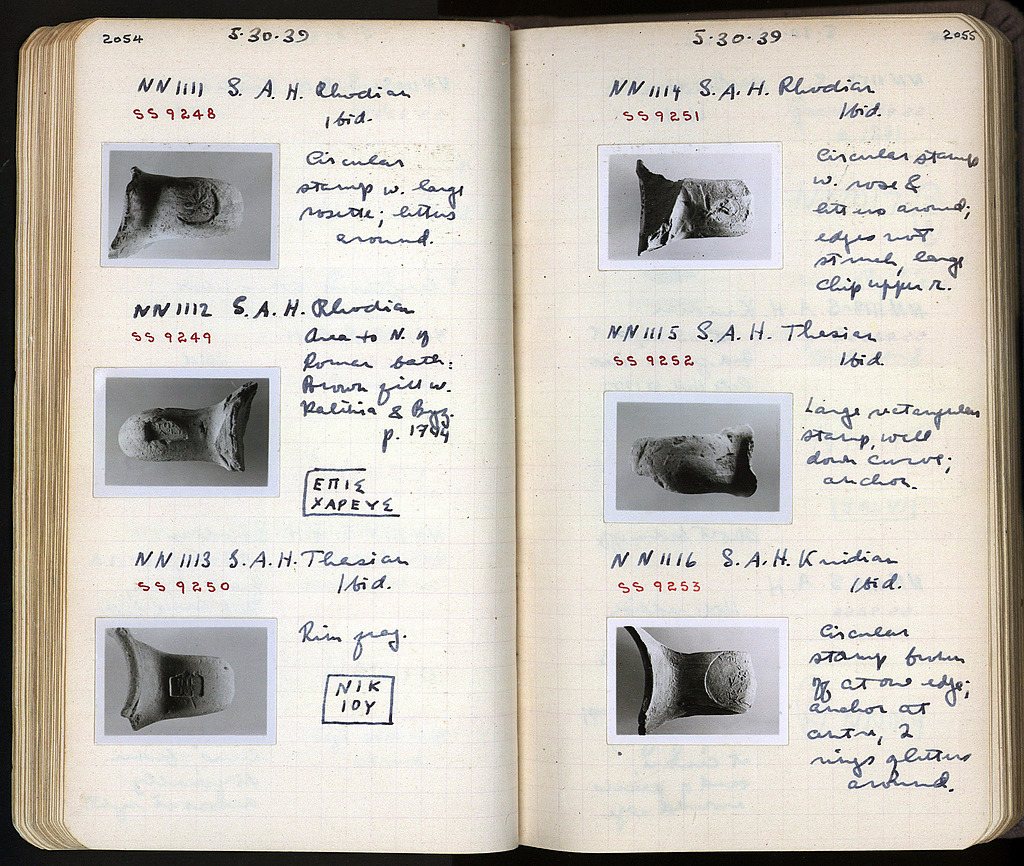 2054
5-30-39
NN1111 S.A.H. Rhodian
SS 9248
Ibid.
Circular
stamp w. large
rosette; letters
around.
NN1112 S.A.H. Rhodian
SS 9249
Area to N. of
Roman bath:
Brown fill w.
& Byz.
p. 1794
ΕΠΙΣ
ΧΑΡΕΥΣ
NN1113 S.A.H. Thasian
SS 9250
Ibid.
Rim frag.
ΝΙΚ
ΙΟΥ
5-30-39
2055
NN1114 S.A.H. Rhodian
SS 9251
Ibid.
Circular stamp
w. rose &
letters around;
edges not
struck, large
chip upper r.
NN1115 S.A.H. Thasian
SS 9252
Ibid.
Large rectangular
stamp, well
down curve;
anchor.
NN1116 S.A.H. Knidian
SS 9253
Ibid.
Circular
stamp broken
off at one edge;
anchor at
centre, 2
rings of letters
around.